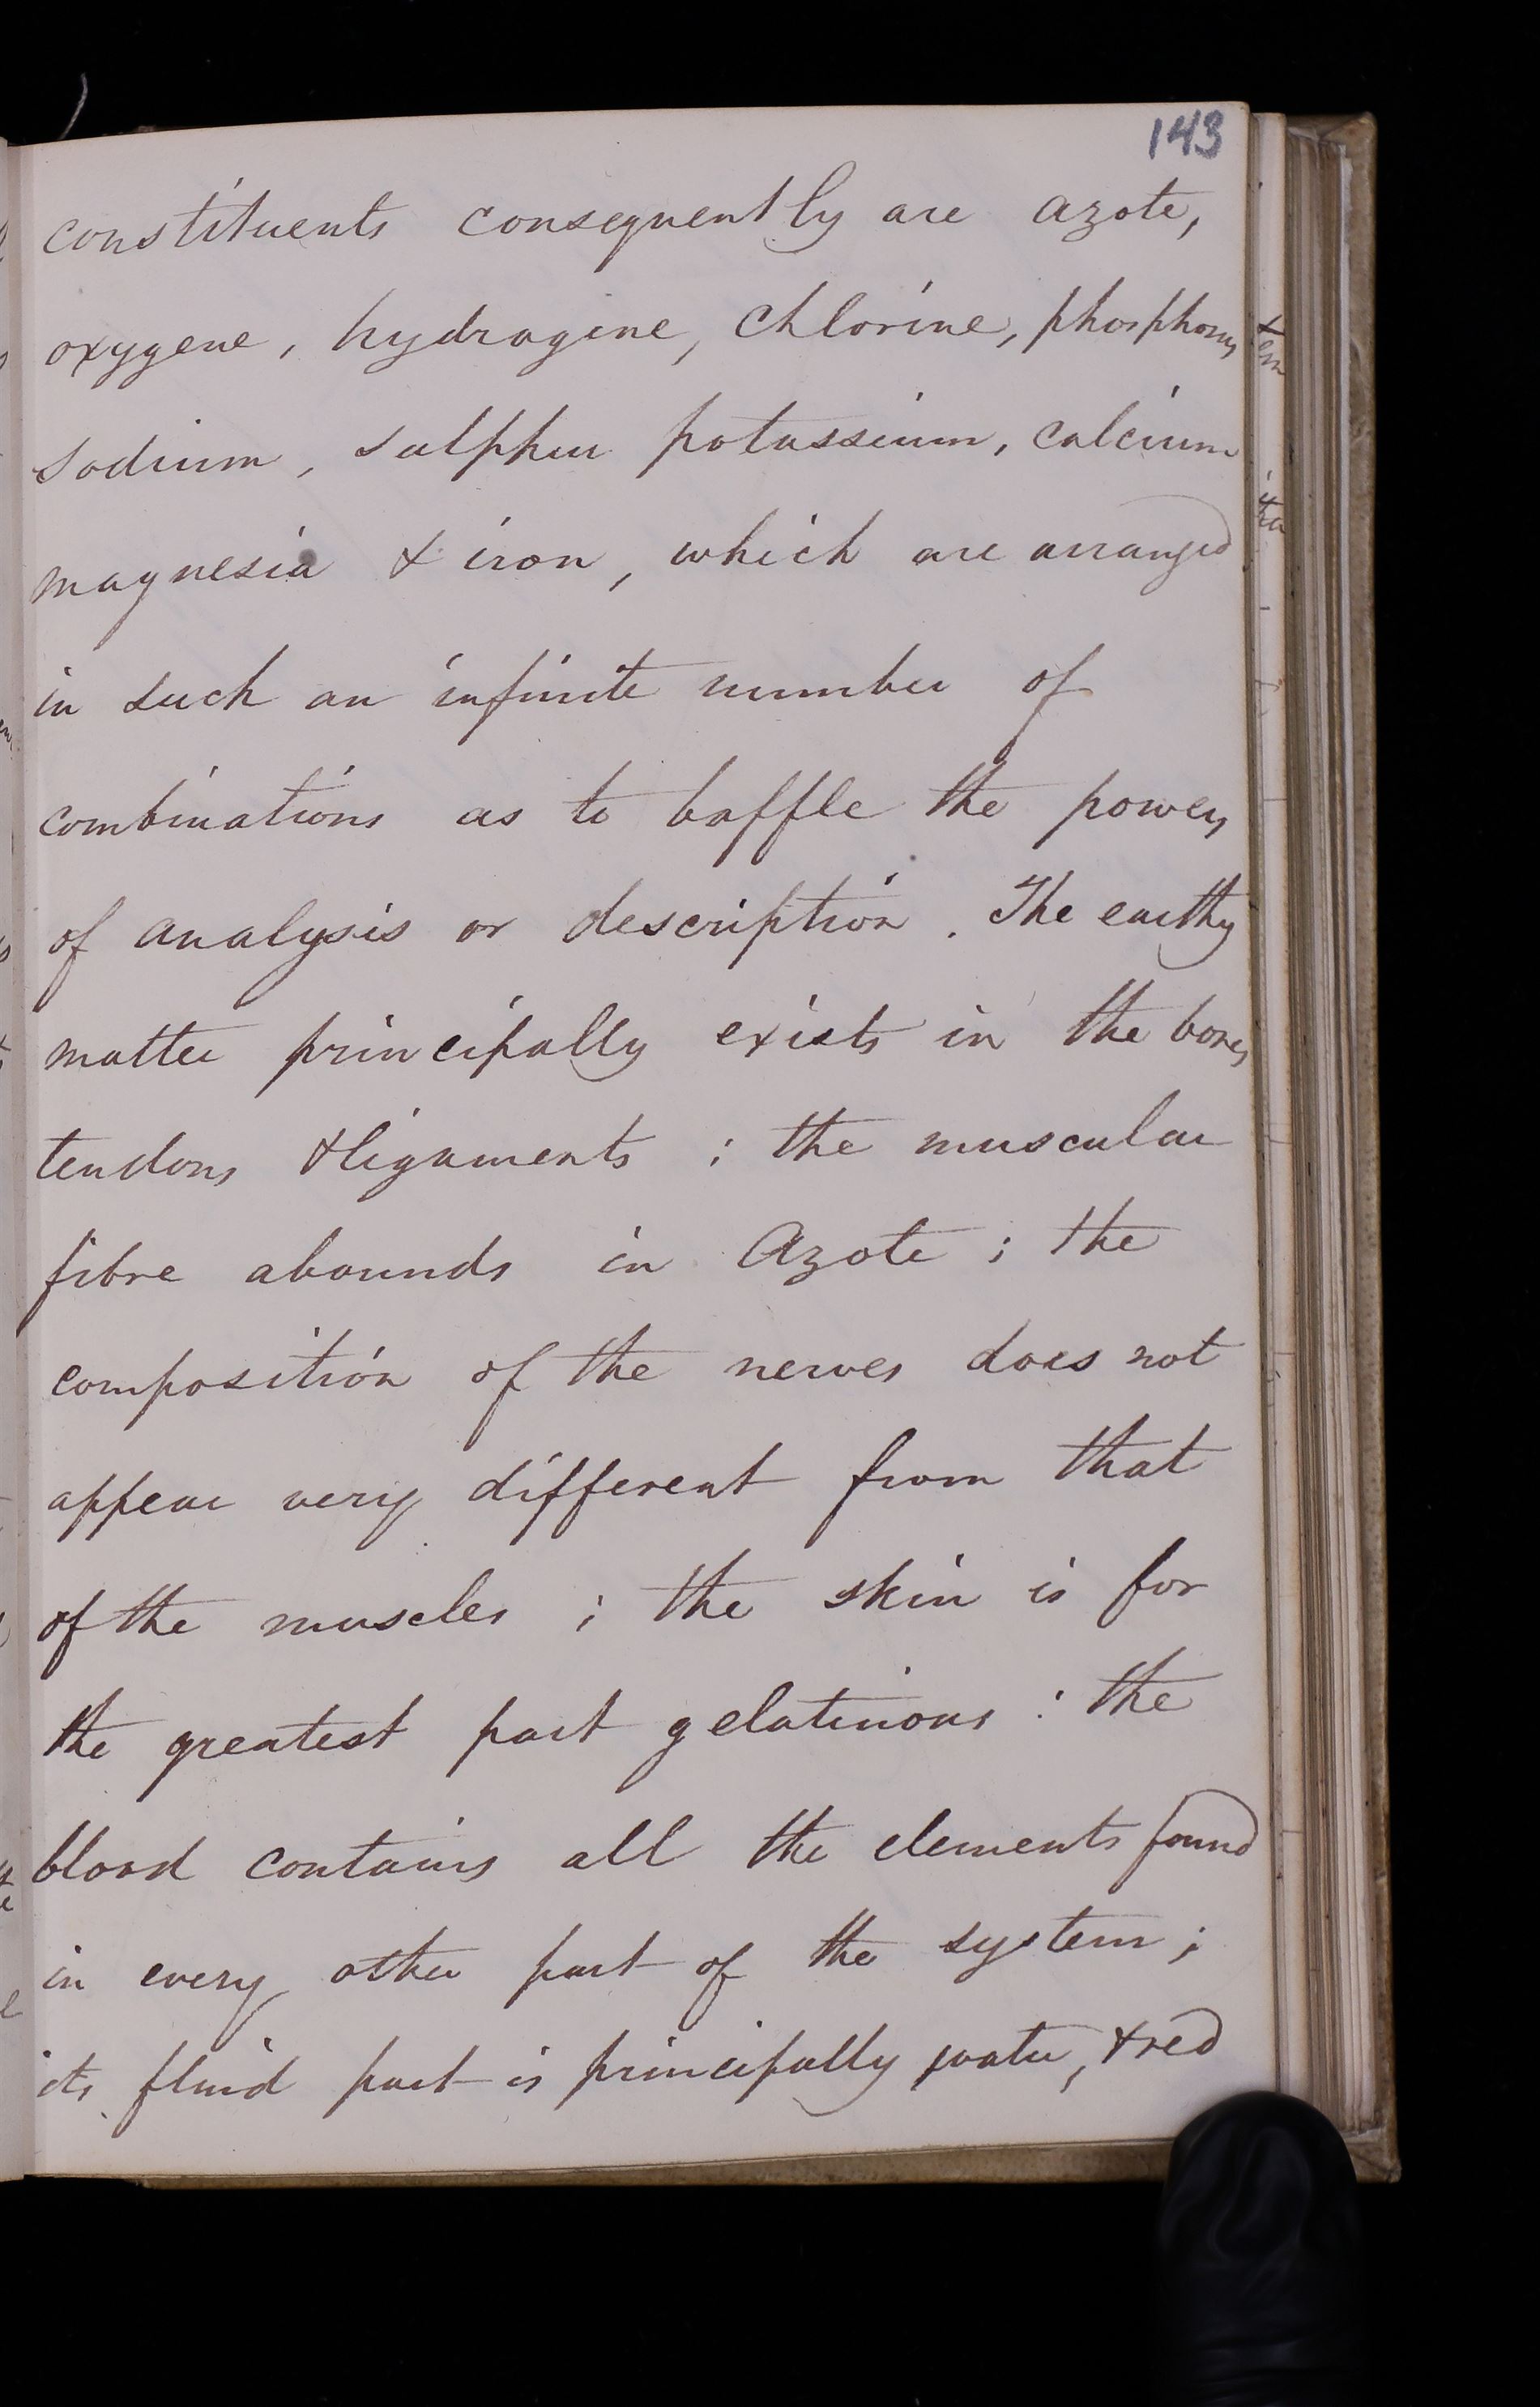 143
constituents consequently are azote,
oxygene, hydrogine, Chlorine, phosphorus
Sodium, sulphur potassium, calcium
magnesia & iron, which are arranged
in such an infinite number of
combinations as to baffle the powers
of analysis or description. The earthy
matter principally exists in the bones
tendons & ligaments; the muscular
fibre abounds in Azote; the
composition of the nerves does not
appear very different from that
of the muscles; the skin is for
the greatest part gelatinous: the
blood contains all the elements found
in every other part of the system;
its fluid part is principally water, & red